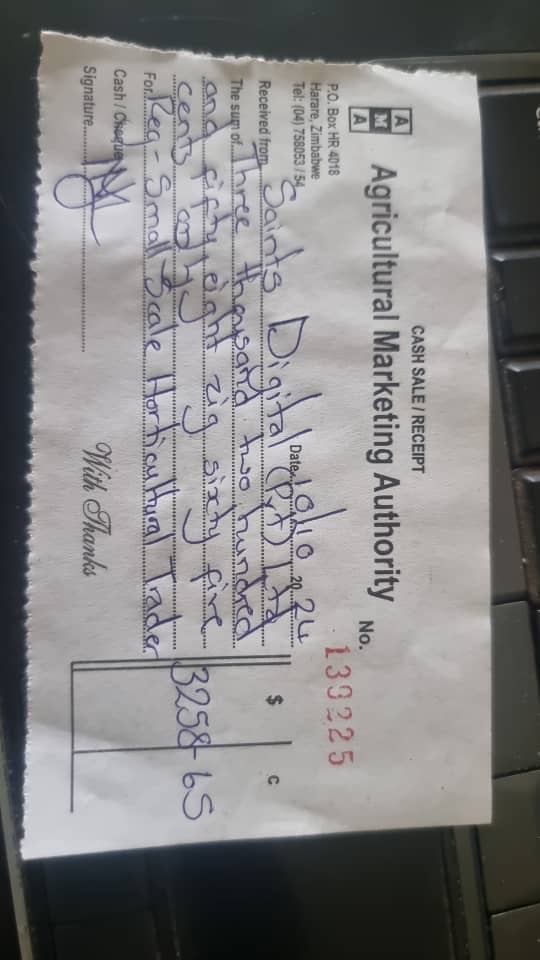 CASH SALE / RECEIPT
A
M
A
Agricultural Marketing Authority
No.
P.O. Box HR 4018
Harare, Zimbabwe
Tel: (04) 758053 / 54
Date 10/10 20 24
Received from Saints Digital (Pvt) Ltd
$ C
The sum of Three thousand two hundred
and fifty eight zig sixty five
cents only
3258-65
For Reg - Small Scale Horticultural Trader
Cash / Cheque
Signature
With Thanks